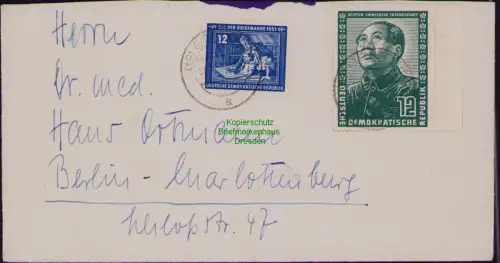 TAG DER BRIEFMARKE 1951
12
DEUTSCHE DEMOKRATISCHE REPUBLIK
DEUTSCH-CHINESISCHE FREUNDSCHAFT
DEUTSCHE
DEMOKRATISCHE
REPUBLIK
12
Herrn
Dr. med.
Hans Ortmann
Berlin-Charlottenburg
str. 47
Kopierschutz
Briefmarkenhaus
Dresden